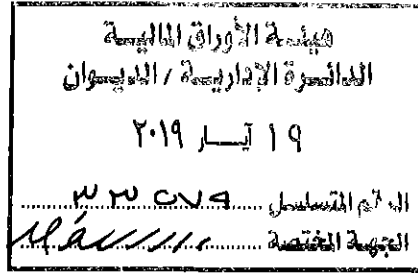 هيئة الأوراق المالية
الدائرة الإدارية / الديوان
١٩ آيار ٢٠١٩
الرقم المتسلسل
الجهة المختصة